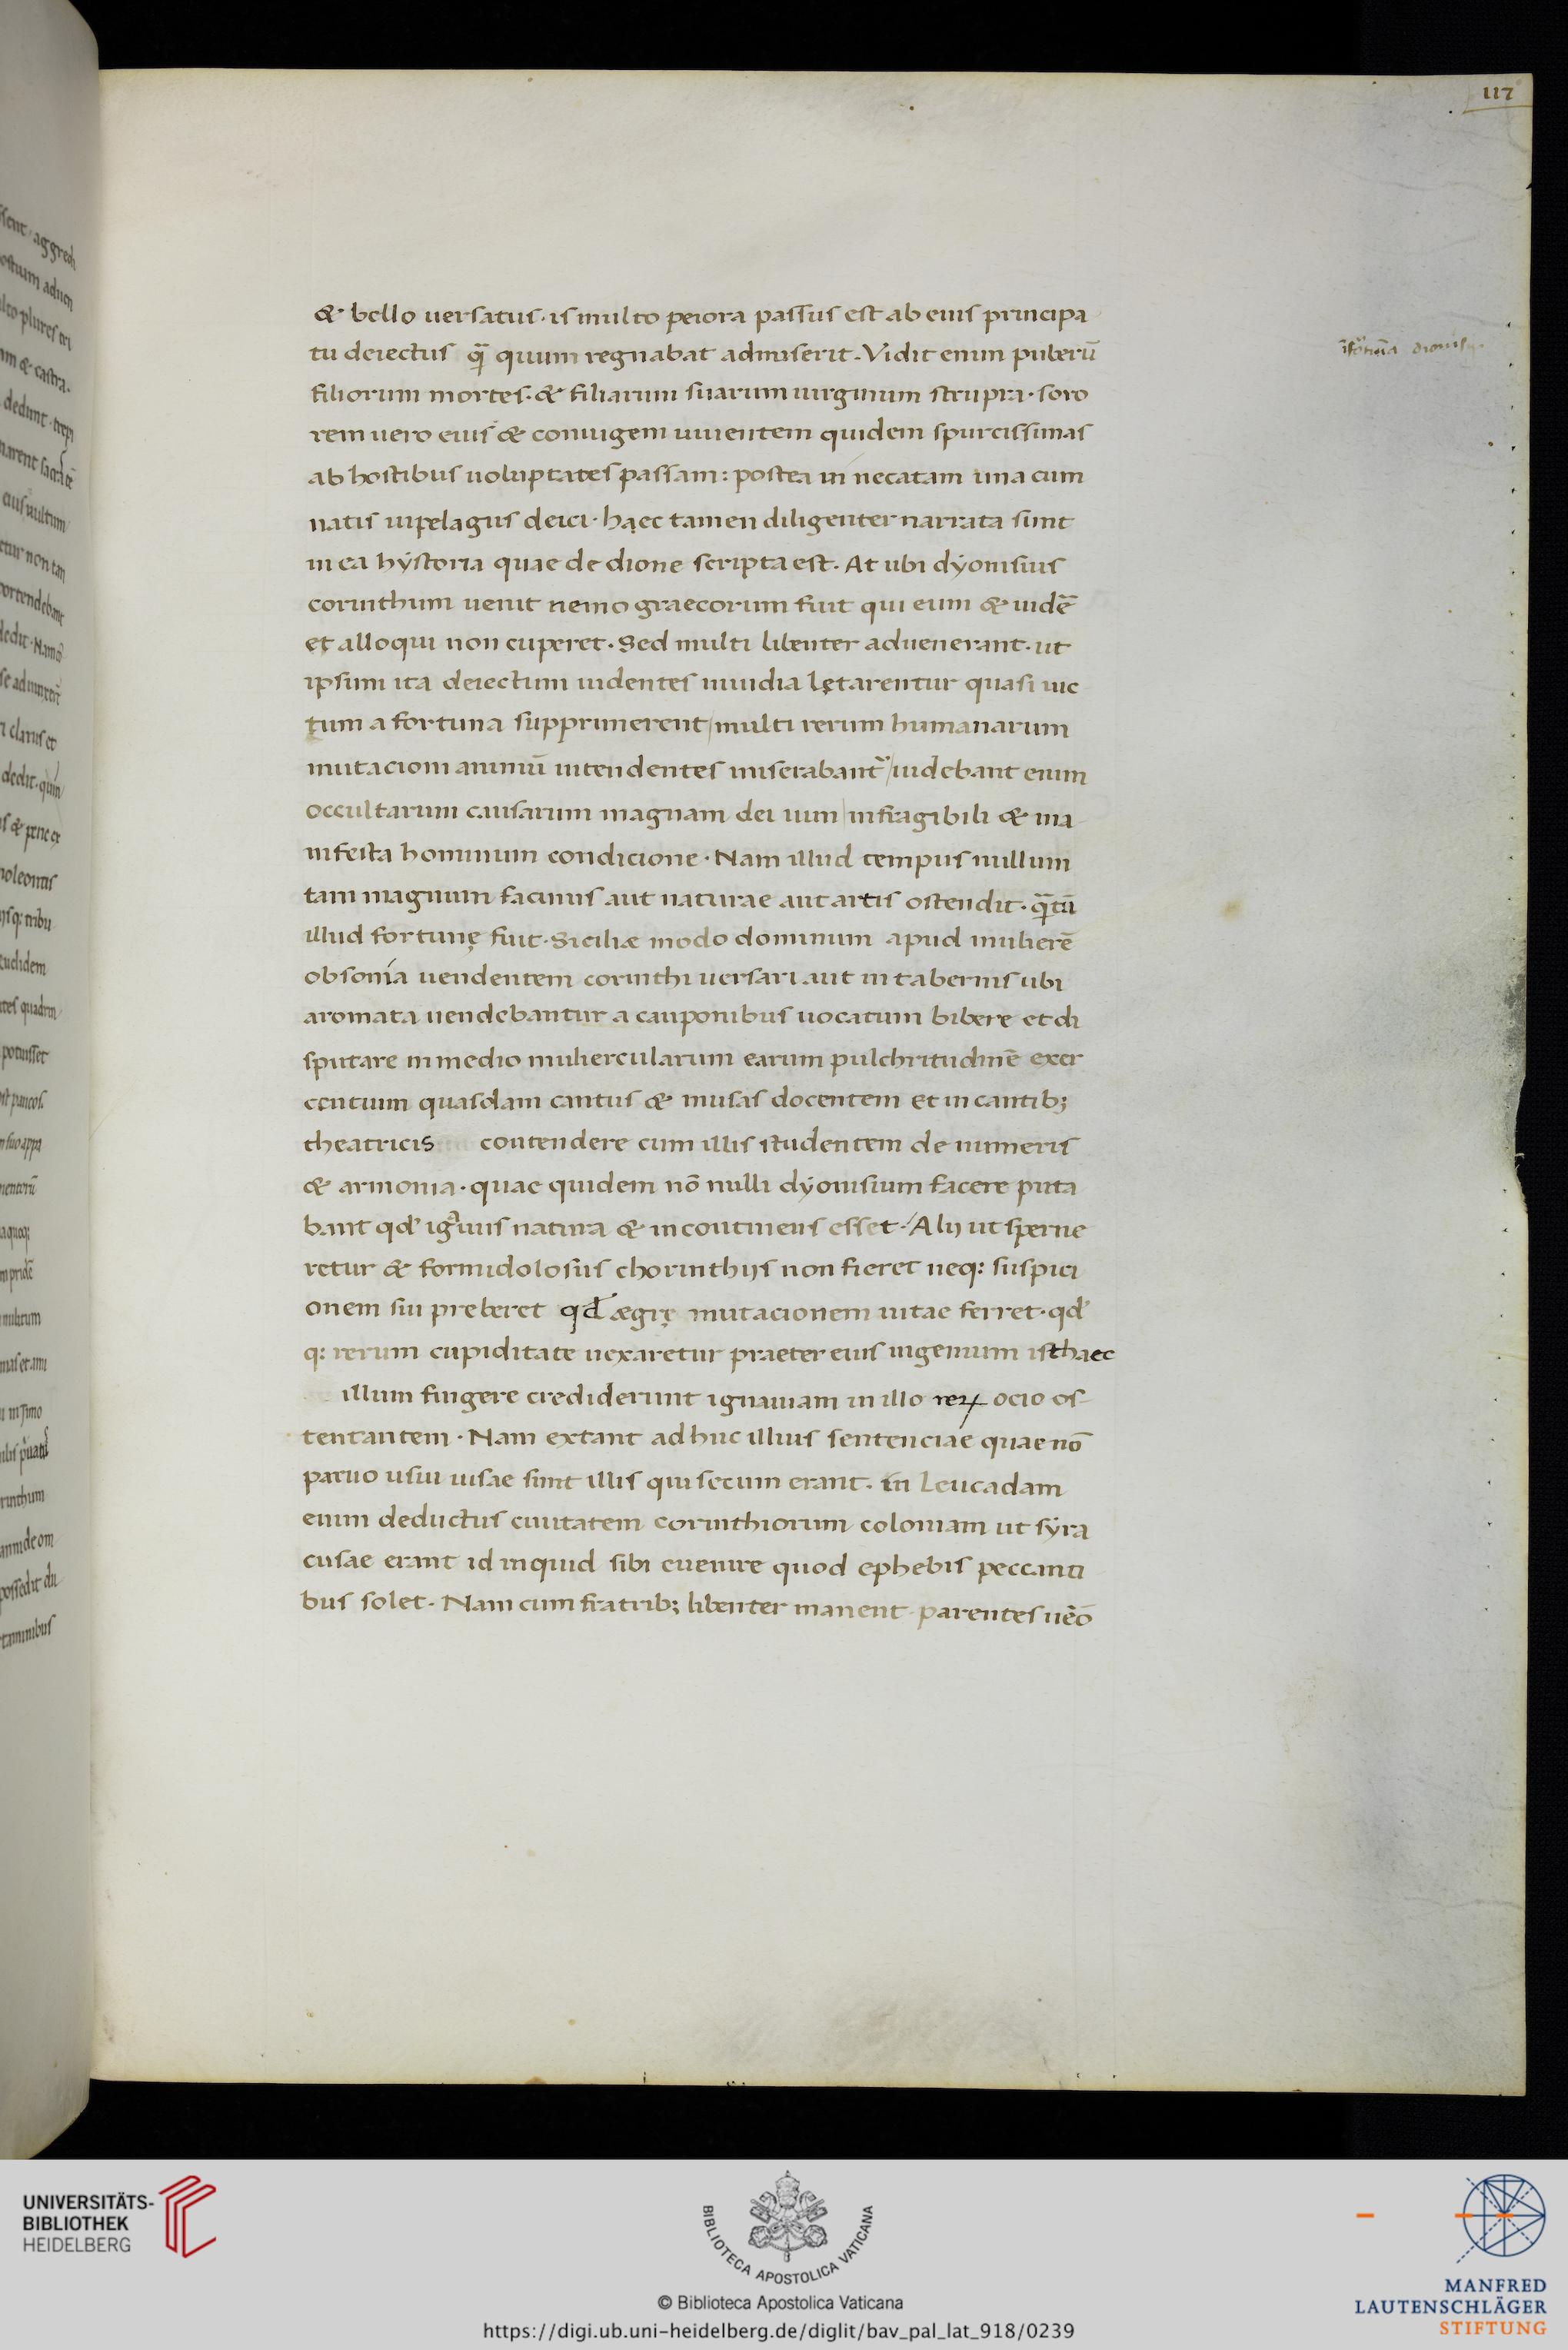 117
& bello uersatus· is multo peiora passus est ab eius principa
tu deiectus quã quum regnabat admiserit. Vidit enim puberũ
filiorum mortes· & filiarum suarum uirginum strupra· soro
rem uero eius & coniugem uiuentem quidem spurcissimas
ab hostibus uoluptates passam: postea in necatam una cum
natis in pelagus deici· hęec tamen diligenter narrata sunt
in ea hystoria quae de dione scripta est. At ubi dyonisius
corinthum uenit nemo graecorum fuit qui eum & uidẽ
et alloqui non cuperet. Sed multi libenter aduenerant. ut
ipsum ita deiectum uidentes inuidia lętarentur quasi uic
tum a fortuna supprimerent/ multi rerum humanarum
mutaciom animũ intendentes miserabant᷑/ uidebant enim
occultarum causarum magnam dei uim/ infragibili & ma
nifesta hominum condicione. Nam illud tempus nullum
tam magnum facinus aut naturae aut artis ostendit. quãtũ
illud fortunę fuit. Siciliæ modo dominum apud mulierẽ
obsonia uendentem corinthi uersari aut in tabernis ubi
aromata uendebantur a cauponibus uocatum bibere et di
sputare in medio muliercularum earum pulchritudinẽ exer
centium quasdam cantus & musas docentem et in cantib;
theatricis contendere cum illis studentem de numeris
& armonia. quae quidem nõ nulli dyonisium facere puta
bant qđ ignauus natura & incontinens esset./ Alij ut sperne
retur & formidolosus chorinthijs non fieret neq: suspici
onem sui preberet qđ ægrę mutacionem uitae ferret. qđ
q: rerum cupiditate uexaretur praeter eius ingenium isthaec
illum fingere crediderunt ignauiam in illo reꝝ ocio os-
tentantem. Nam extant adhuc illius sentenciae quae nõ
paruo usui uisae sunt illis qui secum erant. in Leucadam
enim deductus ciuitatem corinthiorum coloniam ut syra
cusae erant id inquid sibi euenire quod ephebis peccanti
bus solet. Nam cum fratrib; libenter manent parentes uẽo
UNIVERSITÄTS-
BIBLIOTHEK
HEIDELBERG
BIBLIOTECA APOSTOLICA VATICANA
© Biblioteca Apostolica Vaticana
https://digi.ub.uni-heidelberg.de/diglit/bav_pal_lat_918/0239
MANFRED
LAUTENSCHLÄGER
STIFTUNG